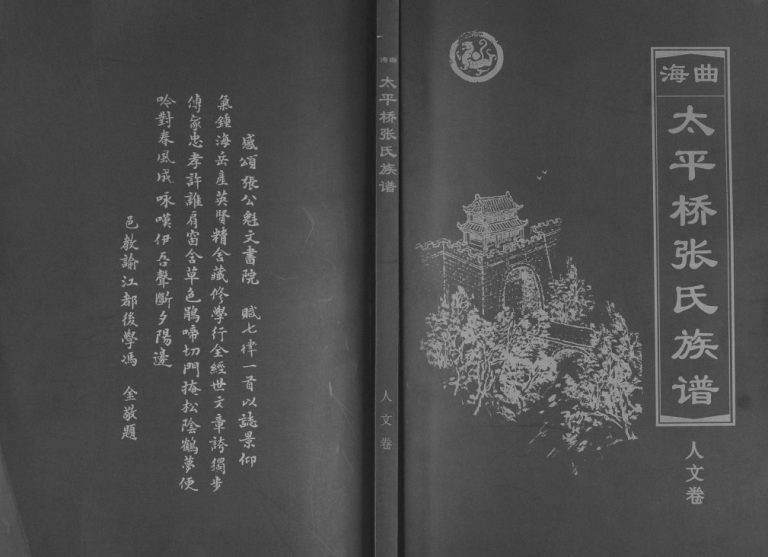 海曲
太平桥张氏族谱
人文卷
海曲
太平桥张氏族谱
人文卷
感頌張公魁文書院 賦七律一首以誌景仰
氣鍾海岳產英賢精舍藏修學行全經世文章誇獨步
傳家忠孝許誰肩窗含草色鵑啼切門掩松陰鶴夢便
吟對春風成咏嘆伊吾聲斷夕陽邊
邑教諭江都後學馮 金敬題